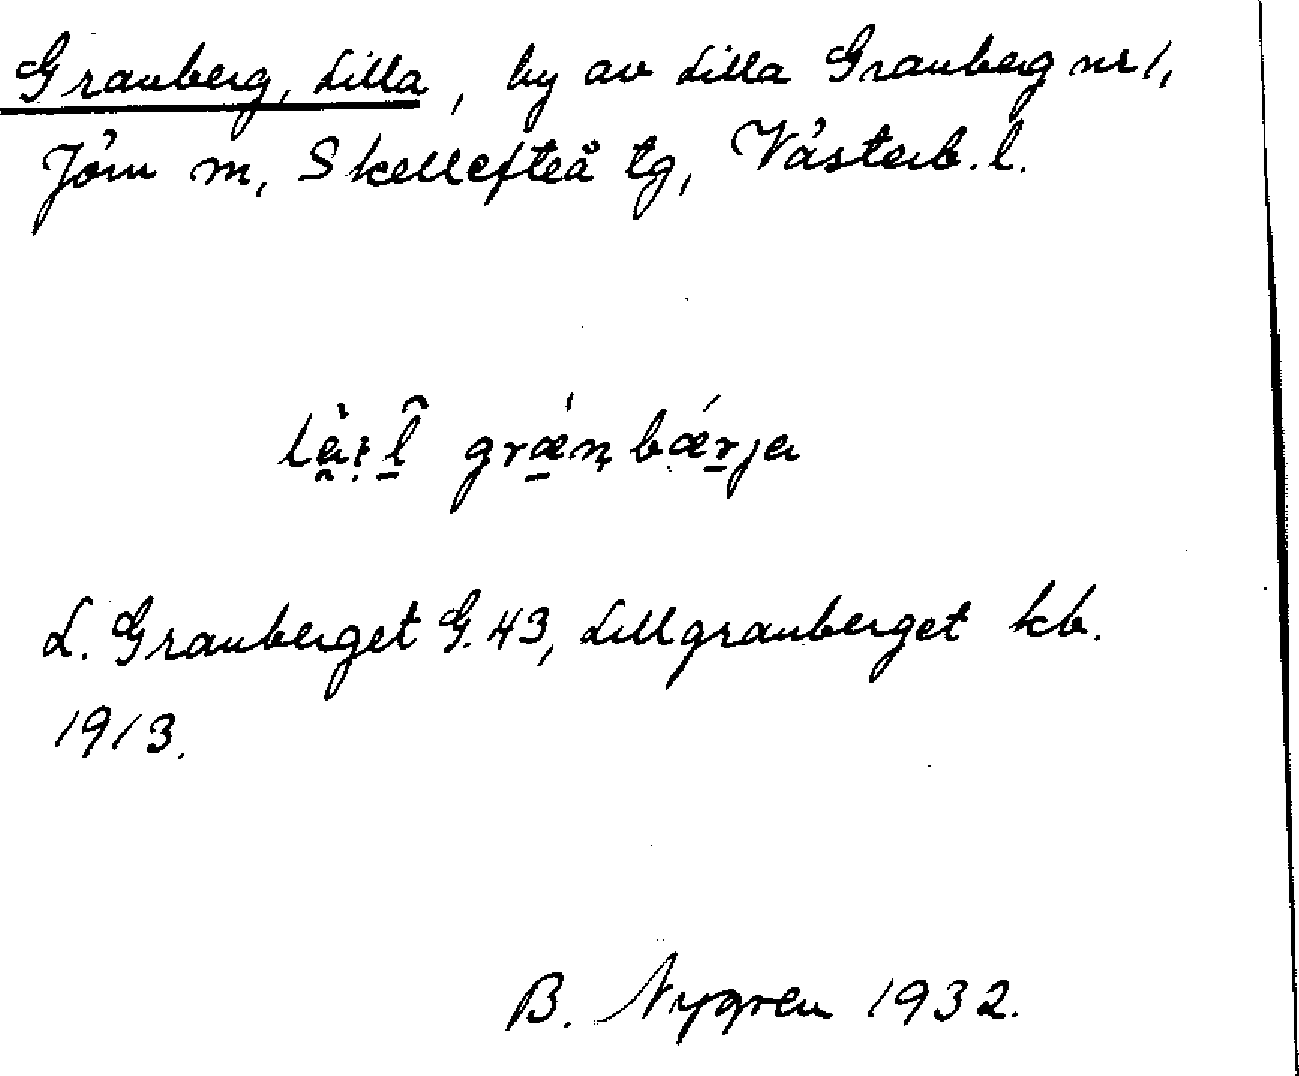 Granberg, Lilla, by av Lilla Granberg nr 1,
Jörn sn, Skellefteå tg, Västerb. l.
grǽnbǽrja
L. Granberget G.43, Lillgranberget kb.
1913.
B. Nygren 1932.